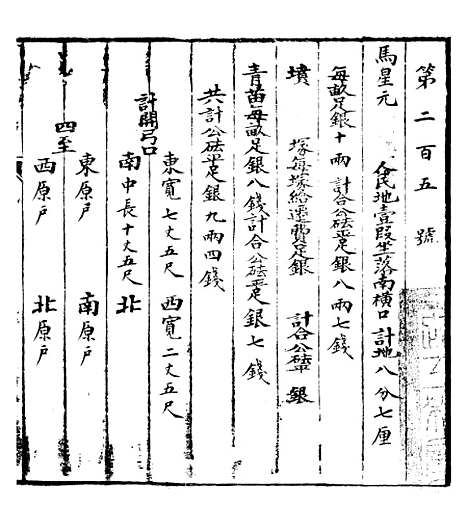 第二百五號
馬星元 合民地壹段坐落南橫口計地八分七厘
每畝足銀十兩 計合公砝平足銀八兩七錢
墳 塚每塚給遷費足銀 計合公砝平 銀
青苗每畝足銀八錢計合公砝平足銀七錢
共計公砝平足銀九兩四錢
東寬七丈五尺 西寬二丈五尺
計開弓口
南中長十丈五尺 北
東原戶 南原戶
四至
西原戶 北原戶